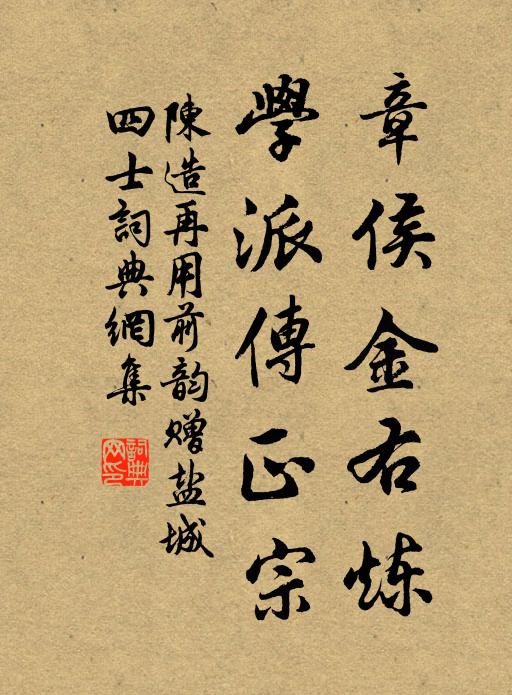 章侯金右炼
學派傳正宗
陳造再用前韵贈盐城
四士詞典網集
詞典网印